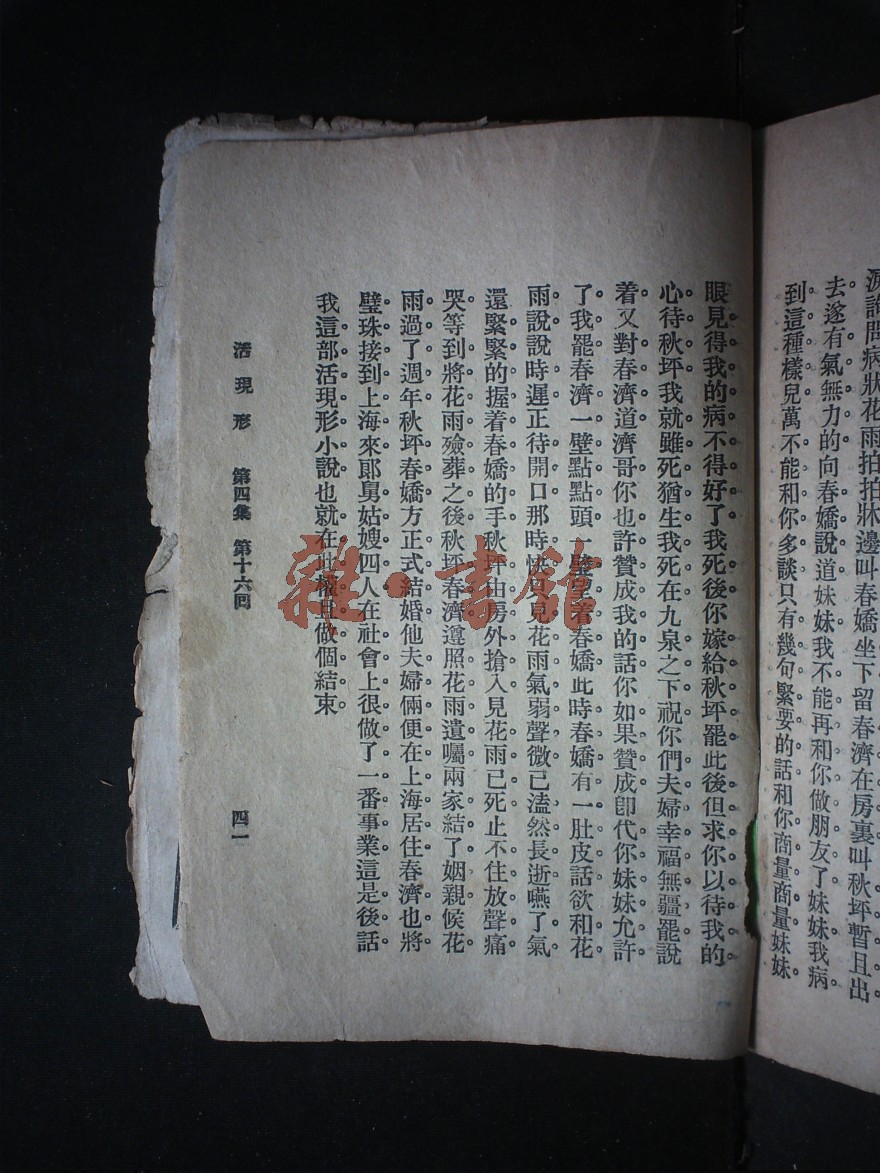 淚詢問病狀花雨拍拍牀邊叫春嬌坐下留春濟在房裏叫秋坪暫且出
去遂有氣無力的向春嬌說道妹妹我不能再和你做朋友了妹妹我病
到這種樣兒萬不能和你多談只有幾句緊要的話和你商量商量妹妹
眼見得我的病不得好了我死後你嫁給秋坪罷此後但求你以待我的
心待秋坪我就雖死猶生我死在九泉之下祝你們夫婦幸福無疆罷說
着又對春濟道濟哥你也許贊成我的話你如果贊成卽代你妹妹允許
了我罷春濟一壁點點頭一壁望着春嬌此時春嬌有一肚皮話欲和花
雨說說時遲正待開口那時快只見花雨氣弱聲微已溘然長逝嚥了氣
還緊緊的握着春嬌的手秋坪由房外搶入見花雨已死止不住放聲痛
哭等到將花雨殮葬之後秋坪春濟遵照花雨遺囑兩家結了姻親候花
雨過了週年秋坪春嬌方正式結婚他夫婦倆便在上海居住春濟也將
璧珠接到上海來郞舅姑嫂四人在社會上很做了一番事業這是後話
我這部活現形小說也就在此權且做個結束
活現形 第四集 第十六回 四一
雜·書館